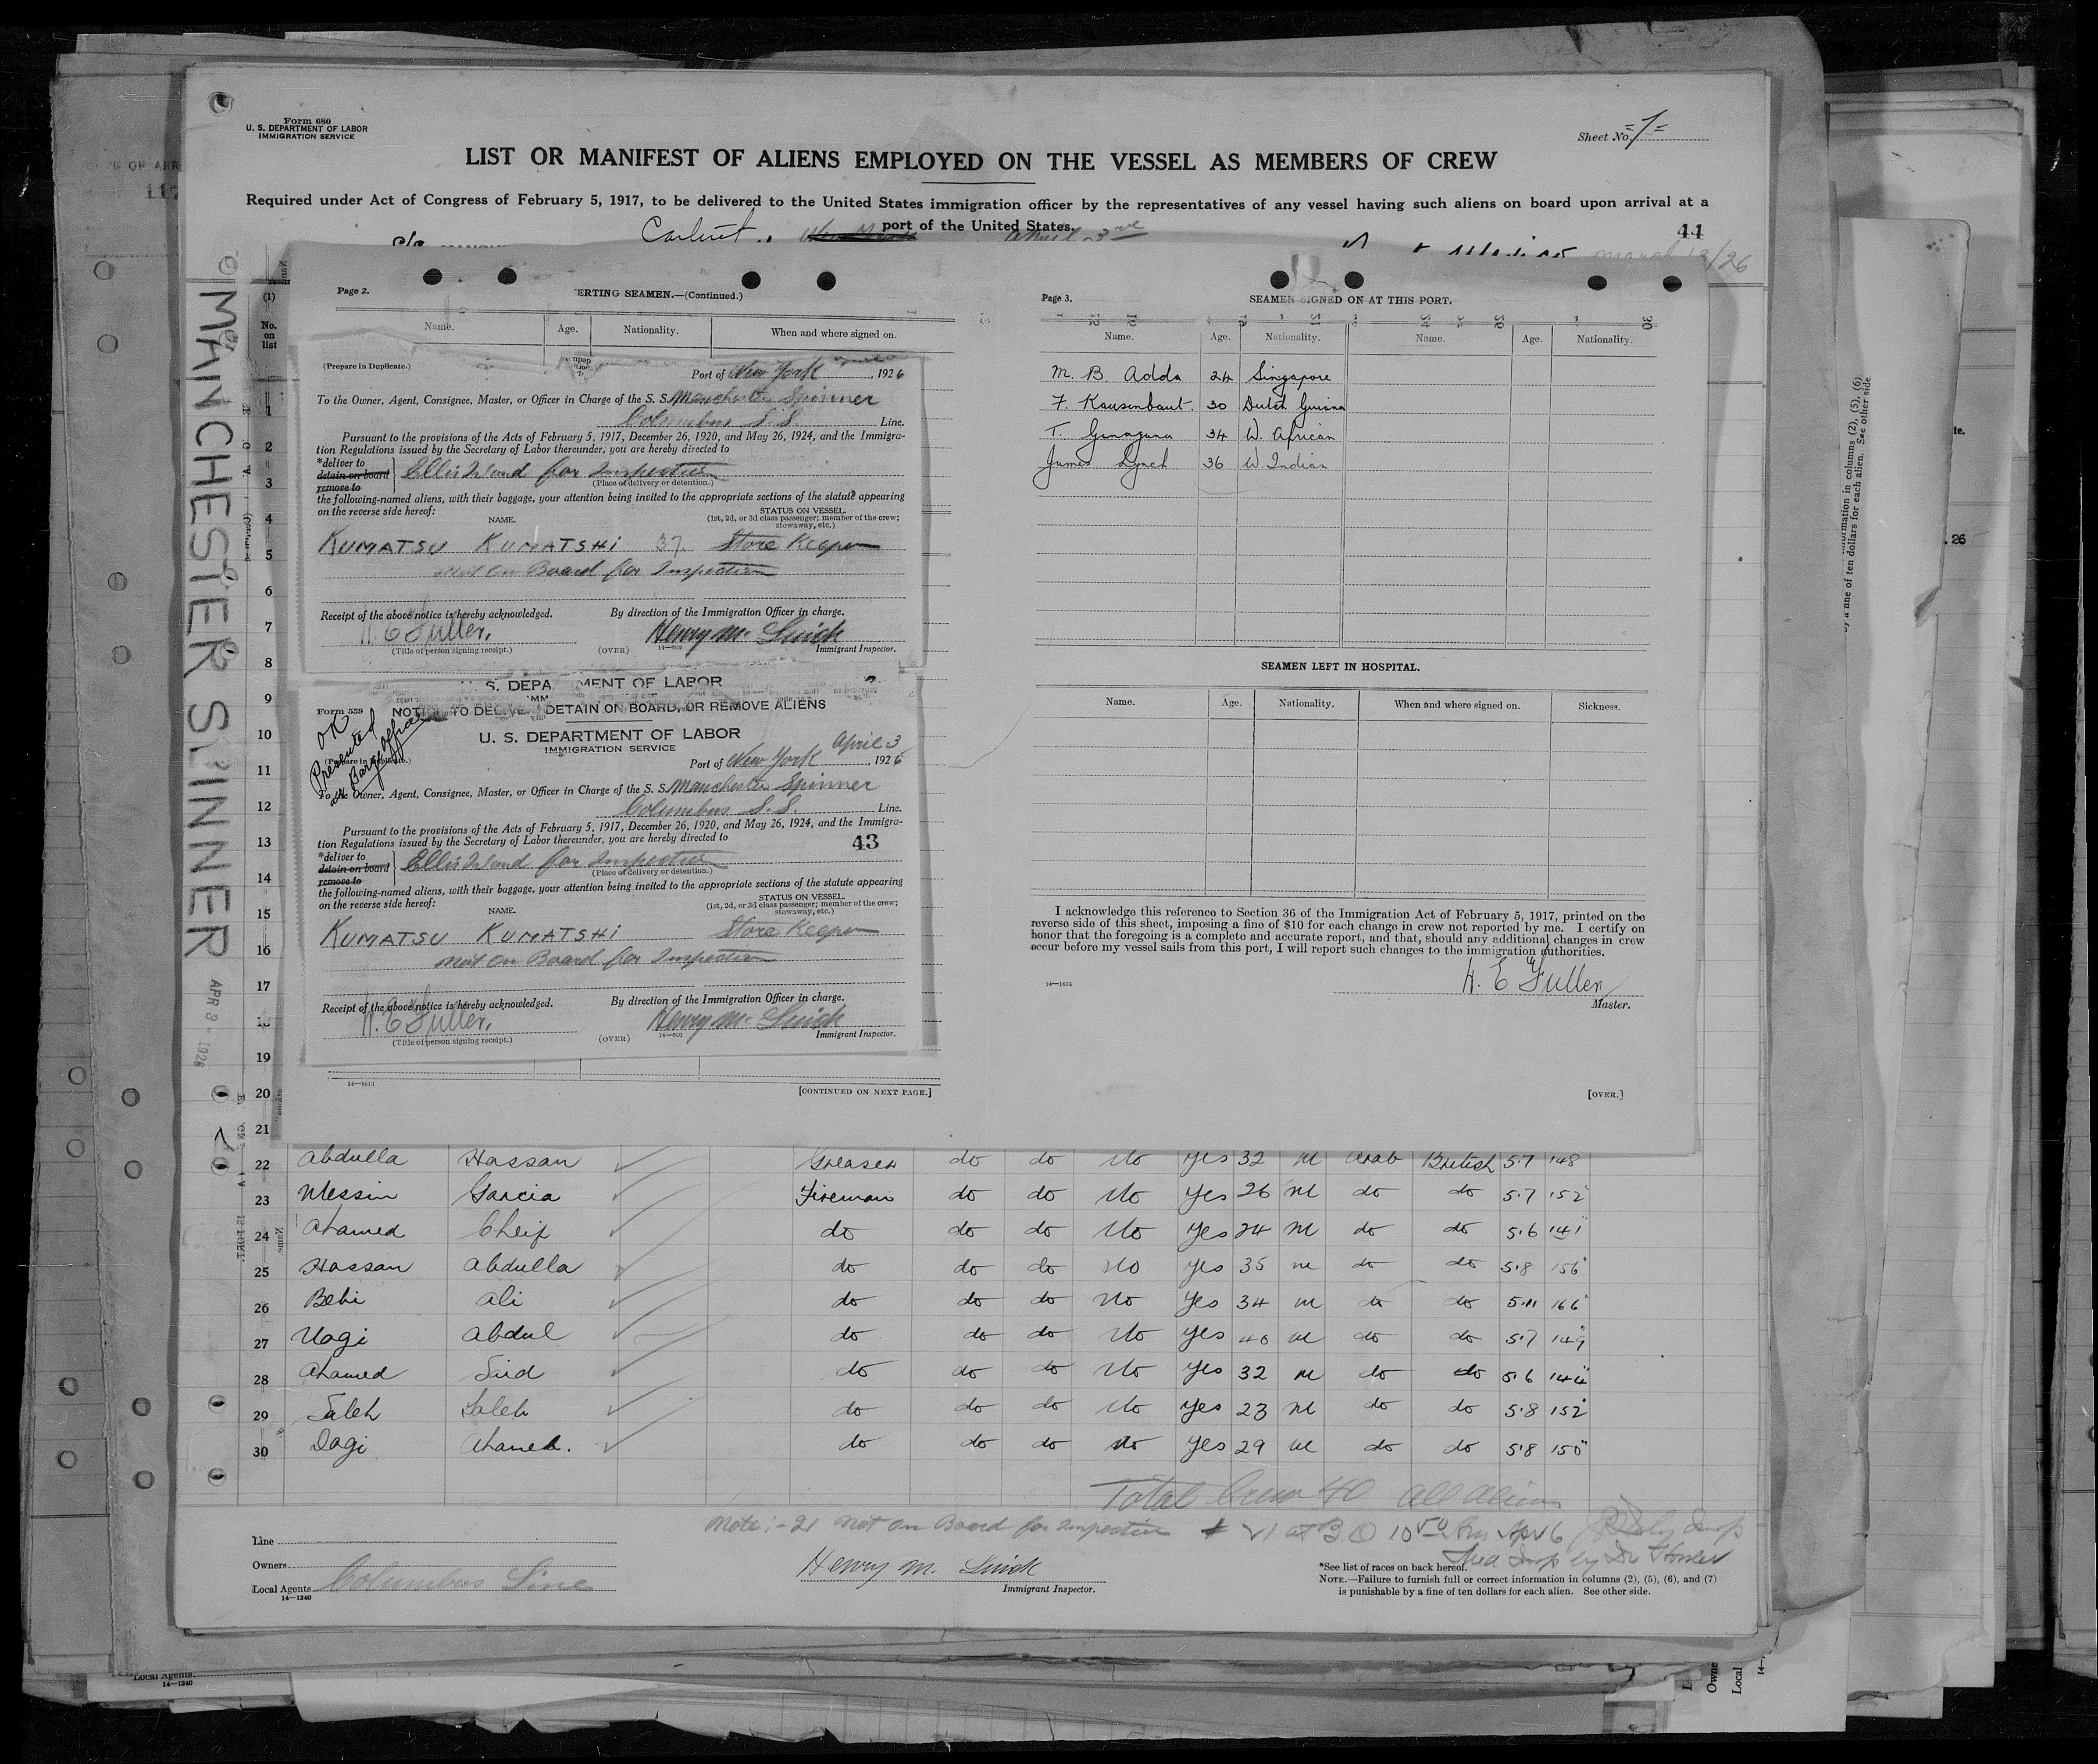 Form 680
U. S. DEPARTMENT OF LABOR
IMMIGRATION SERVICE
Sheet No. =1=
LIST OR MANIFEST OF ALIENS EMPLOYED ON THE VESSEL AS MEMBERS OF CREW
Required under Act of Congress of February 5, 1917, to be delivered to the United States immigration officer by the representatives of any vessel having such aliens on board upon arrival at a
port of the United States.
44
S/S
April 3rd
MANCHESTER SPINNER
APR 3 - 1926
(1)
No. on list
Page 2.
ERTING SEAMEN.—(Continued.)
Name. Age. Nationality. When and where signed on.
(Prepare in Duplicate.)
Port of New York, 1926
To the Owner, Agent, Consignee, Master, or Officer in Charge of the S. S. Manchester Spinner
Columbus S.S. Line.
Pursuant to the provisions of the Acts of February 5, 1917, December 26, 1920, and May 26, 1924, and the Immigra-
tion Regulations issued by the Secretary of Labor thereunder, you are hereby directed to
*deliver to
detain on board
remove to
Ellis Island for Inspection
(Place of delivery or detention.)
the following-named aliens, with their baggage, your attention being invited to the appropriate sections of the statute appearing
on the reverse side hereof:
NAME.
STATUS ON VESSEL.
(1st, 2d, or 3d class passenger; member of the crew;
stowaway, etc.)
KUMATSU KUMATSHI 37. Store Keeper
not on Board for Inspection
Receipt of the above notice is hereby acknowledged. By direction of the Immigration Officer in charge.
H. E. Fuller. Henry M.
(Title of person signing receipt.) (OVER) Immigrant Inspector.
S. DEPA MENT OF LABOR
Form 559
NOTI TO DELIVE DETAIN ON BOARD, OR REMOVE ALIENS
U. S. DEPARTMENT OF LABOR
IMMIGRATION SERVICE
OK
Presented
at Barge office
(Prepare in Duplicate.)
April 3
Port of New York, 1926
To the Owner, Agent, Consignee, Master, or Officer in Charge of the S. S. Manchester Spinner
Columbus S.S. Line.
Pursuant to the provisions of the Acts of February 5, 1917, December 26, 1920, and May 26, 1924, and the Immigra-
tion Regulations issued by the Secretary of Labor thereunder, you are hereby directed to
43
*deliver to
detain on board
remove to
Ellis Island for Inspection
(Place of delivery or detention.)
the following-named aliens, with their baggage, your attention being invited to the appropriate sections of the statute appearing
on the reverse side hereof:
NAME.
STATUS ON VESSEL.
(1st, 2d, or 3d class passenger; member of the crew;
stowaway, etc.)
KUMATSU KUMATSHI Store Keeper
not on Board for Inspection
Receipt of the above notice is hereby acknowledged. By direction of the Immigration Officer in charge.
H. E. Fuller. Henry M.
(Title of person signing receipt.) (OVER) Immigrant Inspector.
14—1613
[CONTINUED ON NEXT PAGE.]
Page 3.
SEAMEN SIGNED ON AT THIS PORT.
Name. Age. Nationality. Name. Age. Nationality.
M. B. Adda 24 Singapore
F. Kausenbaut. 30 Dutch Guiana
T. 34 W. African
James Lynch 36 W. Indian
SEAMEN LEFT IN HOSPITAL.
Name. Age. Nationality. When and where signed on. Sickness.
I acknowledge this reference to Section 36 of the Immigration Act of February 5, 1917, printed on the
reverse side of this sheet, imposing a fine of $10 for each change in crew not reported by me. I certify on
honor that the foregoing is a complete and accurate report, and that, should any additional changes in crew
occur before my vessel sails from this port, I will report such changes to the immigration authorities.
H. E. Fuller
14—1613
Master.
[OVER.]
1
2
3
4
5
6
7
8
9
10
11
12
13
14
15
16
17
19
20
21
22 Abdulla Hassan Greaser do do No Yes 32 M Arab British 5.7 148
23 Messin Garcia Fireman do do No Yes 26 M do do 5.7 152
24 Ahamed Cheif do do do No Yes 24 M do do 5.6 141
25 Hassan Abdulla do do do No Yes 35 M do do 5.8 156
26 Behi Ali do do do No Yes 34 M do do 5.11 166
27 Nagi Abdul do do do No Yes 40 M do do 5.7 149
28 Ahamed Said do do do No Yes 32 M do do 5.6 144
29 Saleh Saleh do do do No Yes 23 M do do 5.8 152
30 Dagi Ahamed. do do do No Yes 29 M do do 5.8 150
Total Crew 40 All Aliens
Note:- 21 Not on Board for Inspection
Line
Owners
Local Agents Columbus Line
14—1240
Henry M.
Immigrant Inspector.
*See list of races on back hereof.
NOTE.—Failure to furnish full or correct information in columns (2), (5), (6), and (7)
is punishable by a fine of ten dollars for each alien. See other side.
Local Agents
14—1240